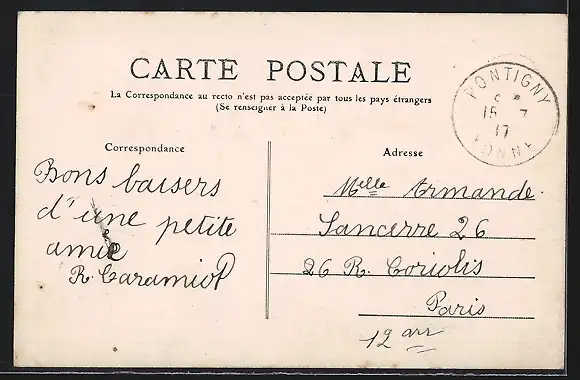 CARTE POSTALE
La Correspondance au recto n'est pas acceptée par tous les pays étrangers
(Se renseigner à la Poste)
PONTIGNY
15 7
17
YONNE
Correspondance
Bons baisers
d'une petite
amie
R. Caramiol
Adresse
Melle Armande
Sancerre 26
26 R. Coriolis
Paris
12 arr